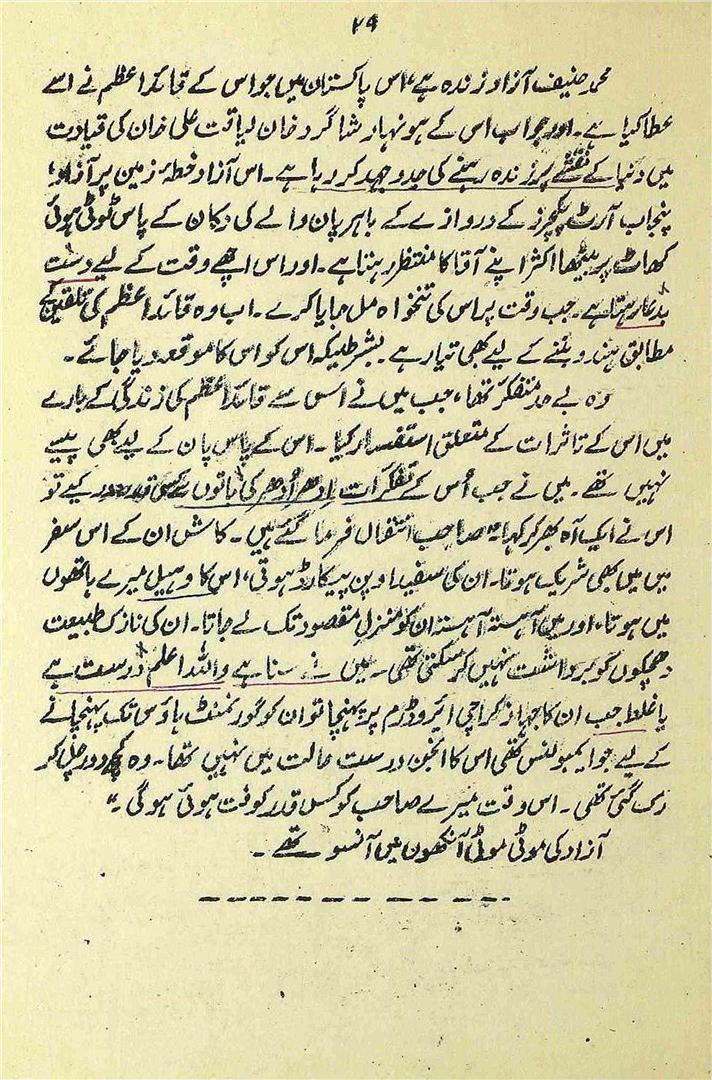 ۲۹
محمد حنیف آزاد زندہ ہے، اس پاکستان میں جو اس کے قائد اعظم نے اسے
عطا کیا ہے۔ اور جو اب اس کے ہونہار شاگرد خان لیاقت علی خان کی قیادت
میں دنیا کے نقشے پر زندہ رہنے کی جدوجہد کر رہا ہے۔ اس آزاد خطۂ زمین پر آزاد،
پنجاب آرٹ پکچرز کے دروازے کے باہر پان والے کی دکان کے پاس ٹوٹی ہوئی
کھاٹ پر بیٹھا اکثر اپنے آقا کا منتظر رہتا ہے۔ اور اس اچھے وقت کے لیے دست
بدعا رہتا ہے۔ جب وقت پر اس کی تنخواہ مل جایا کرے۔ اب وہ قائد اعظم کی تلقین کے
مطابق ہندو بننے کے لیے بھی تیار ہے۔ بشرطیکہ اس کو اس کا موقعہ دیا جائے۔
وہ بے حد متفکر تھا، جب میں نے اس سے قائد اعظم کی زندگی کے بارے
میں اس کے تاثرات کے متعلق استفسار کیا۔ اس کے پاس پان کے لیے بھی پیسے
نہیں تھے۔ میں نے جب اُس کے تفکرات اِدھر اُدھر کی باتوں سے کسی قدر دور کیے تو
اس نے ایک آہ بھر کر کہا۔ "صاحب انتقال فرما گئے ہیں۔ کاش ان کے اس سفر
میں میں بھی شریک ہوتا۔ ان کی سفید اوپن پیکارڈ ہوتی، اس کا وہیل میرے ہاتھوں
میں ہوتا، اور میں آہستہ آہستہ ان کو منزلِ مقصود تک لے جاتا۔ ان کی نازک طبیعت
دھچکوں کو برداشت نہیں کر سکتی تھی۔ میں نے سنا ہے واللہ اعلم درست ہے
یا غلط جب ان کا جہاز کراچی ایروڈرم پر پہنچا تو ان کو گورنمنٹ ہاؤس تک پہنچانے
کے لیے جو ایمبولنس تھی اس کا انجن درست حالت میں نہیں تھا۔ وہ کچھ دور چل کر
رک گئی تھی۔ اس وقت میرے صاحب کو کس قدر کوفت ہوئی ہو گی۔"
آزاد کی موٹی موٹی آنکھوں میں آنسو تھے۔